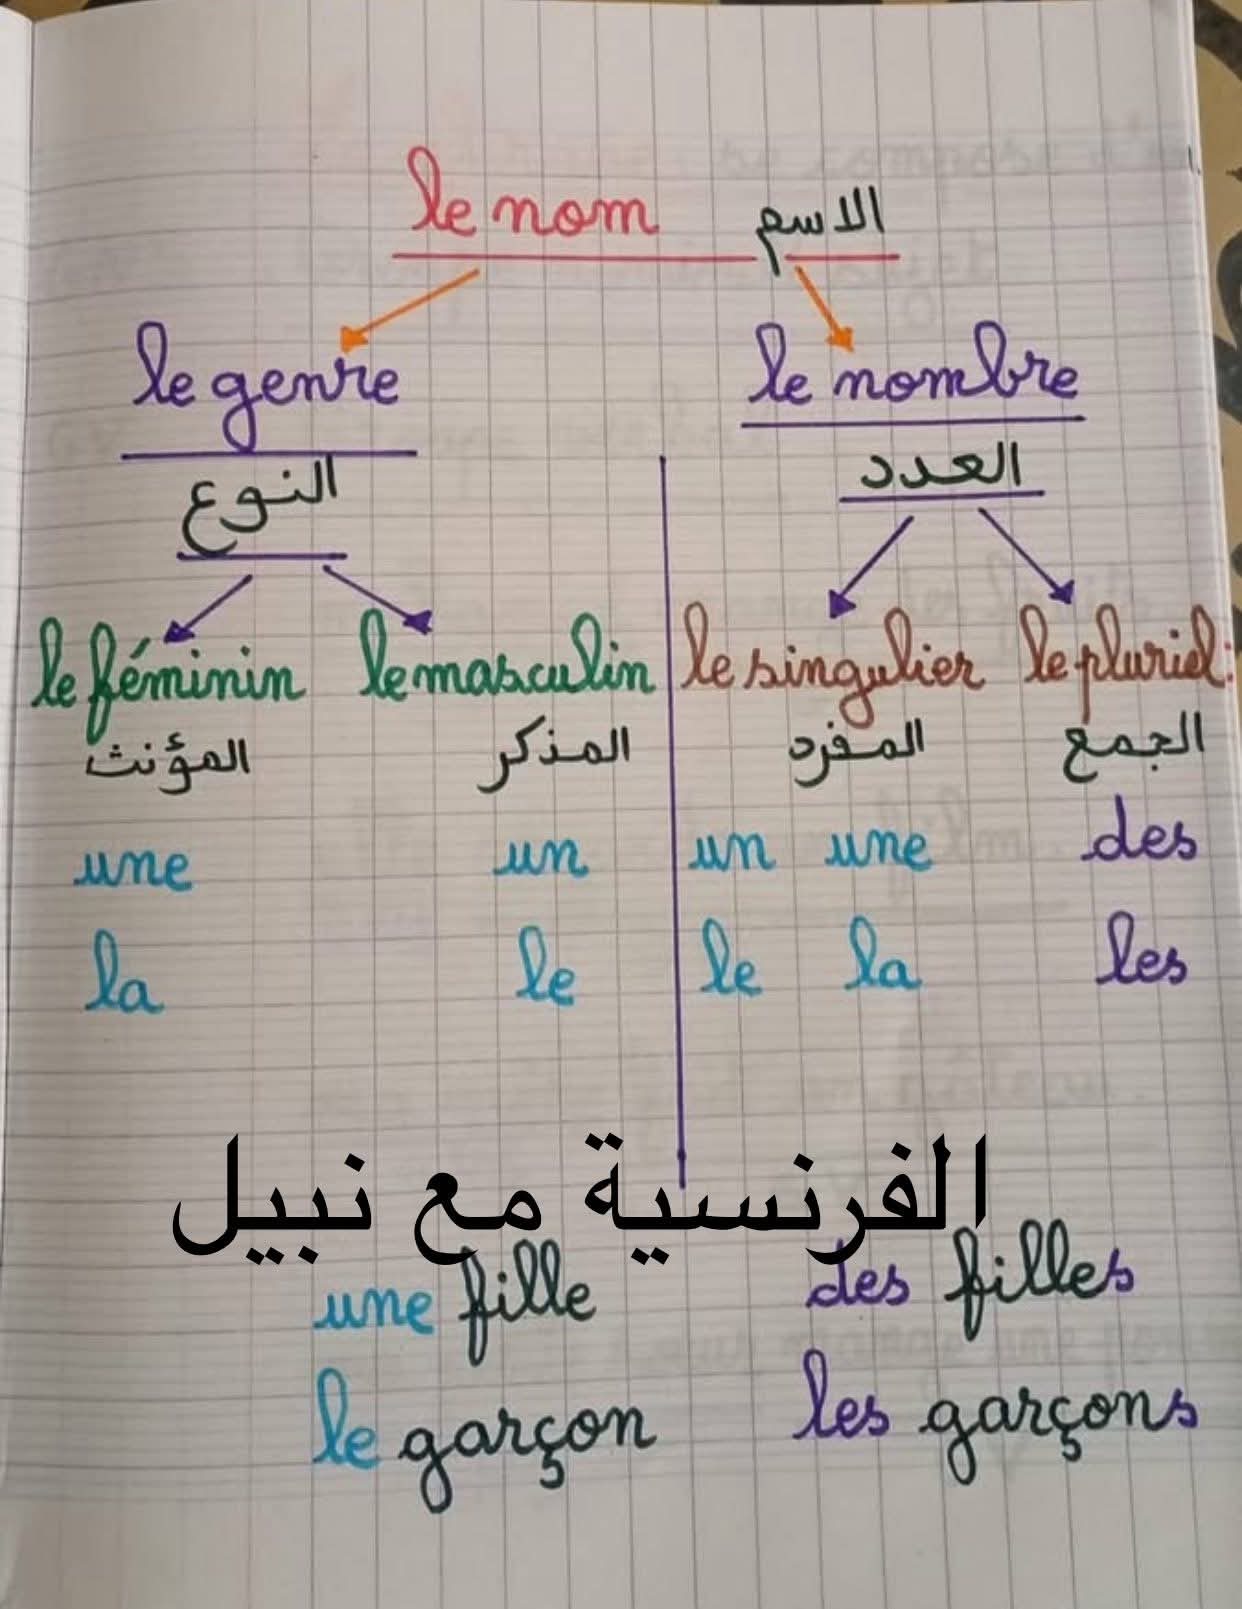 le nom الاسم
le genre le nombre
النوع العدد
le féminin le masculin le singulier le pluriel:
المؤنث المذكر المفرد الجمع
une un un une des
la le le la les
الفرنسية مع نبيل
une fille des filles
le garçon les garçons